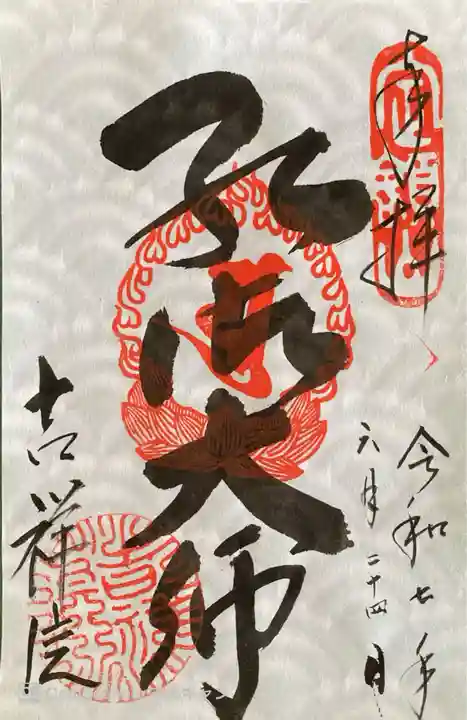 奉拝
令和七年
六月二十四日
弘法大師
吉祥院